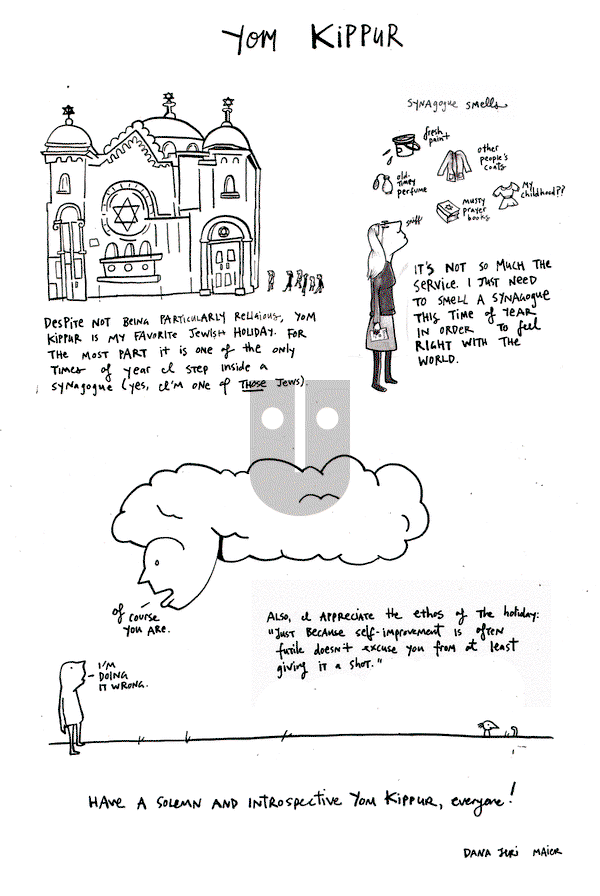 YOM KIPPUR
SYNAGOGUE SMELLS
fresh
paint
other
people's
coats
old-
timey
perfume
MY
childhood??
musty
prayer
books
sniff
DESPITE NOT BEING PARTICULARLY RELIGIOUS, YOM
KIPPUR IS MY FAVORITE JEWISH HOLIDAY. FOR
THE MOST PART IT IS ONE OF THE ONLY
TIMES OF YEAR I STEP INSIDE A
SYNAGOGUE (YES, I'M ONE OF THOSE JEWS).
IT'S NOT SO MUCH THE
SERVICE. I JUST NEED
TO SMELL A SYNAGOGUE
THIS TIME OF YEAR
IN ORDER TO FEEL
RIGHT WITH THE
WORLD.
OF COURSE
YOU ARE.
I'M
DOING
IT WRONG.
ALSO, I APPRECIATE THE ETHOS OF THE HOLIDAY:
"JUST BECAUSE SELF-IMPROVEMENT IS OFTEN
FUTILE DOESN'T EXCUSE YOU FROM AT LEAST
GIVING IT A SHOT."
HAVE A SOLEMN AND INTROSPECTIVE YOM KIPPUR, everyone!
DANA JERI MAIER